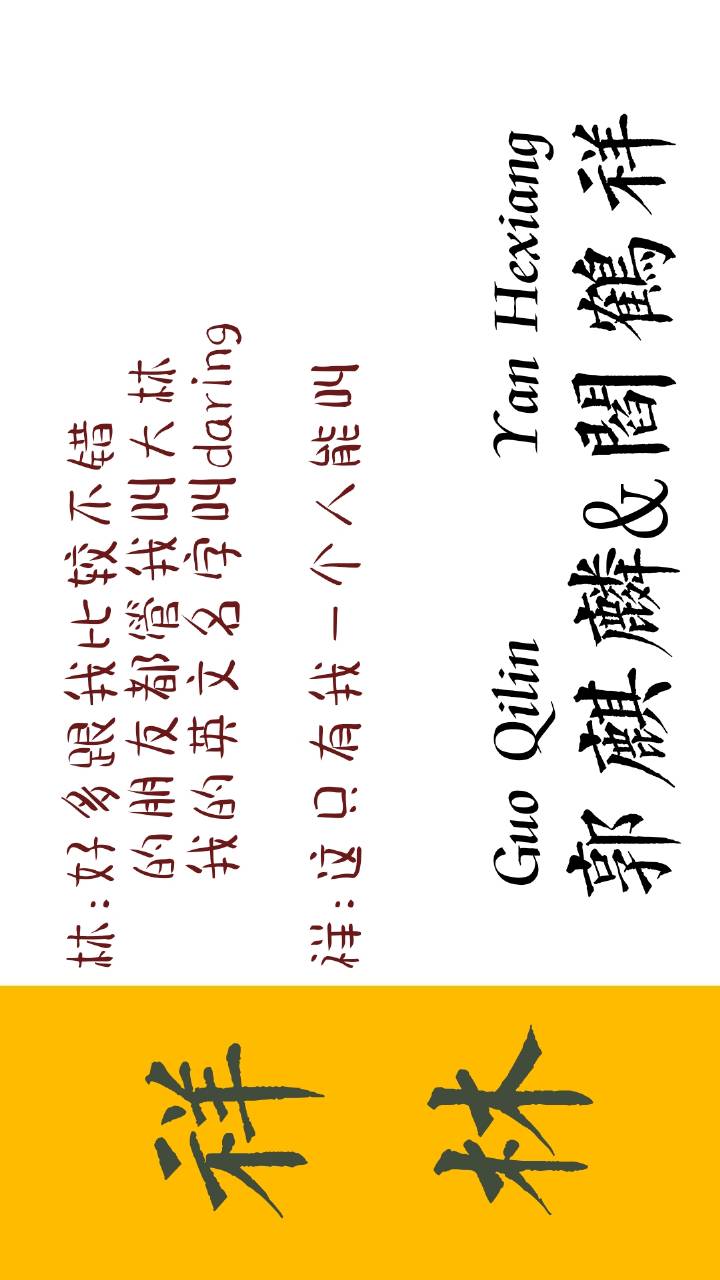 祥
林
林:好多跟我比较不错
的朋友都管我叫大林
我的英文名字叫daring
祥:这只有我一个人能叫
Guo Qilin Yan Hexiang
郭麒麟&閻鶴祥